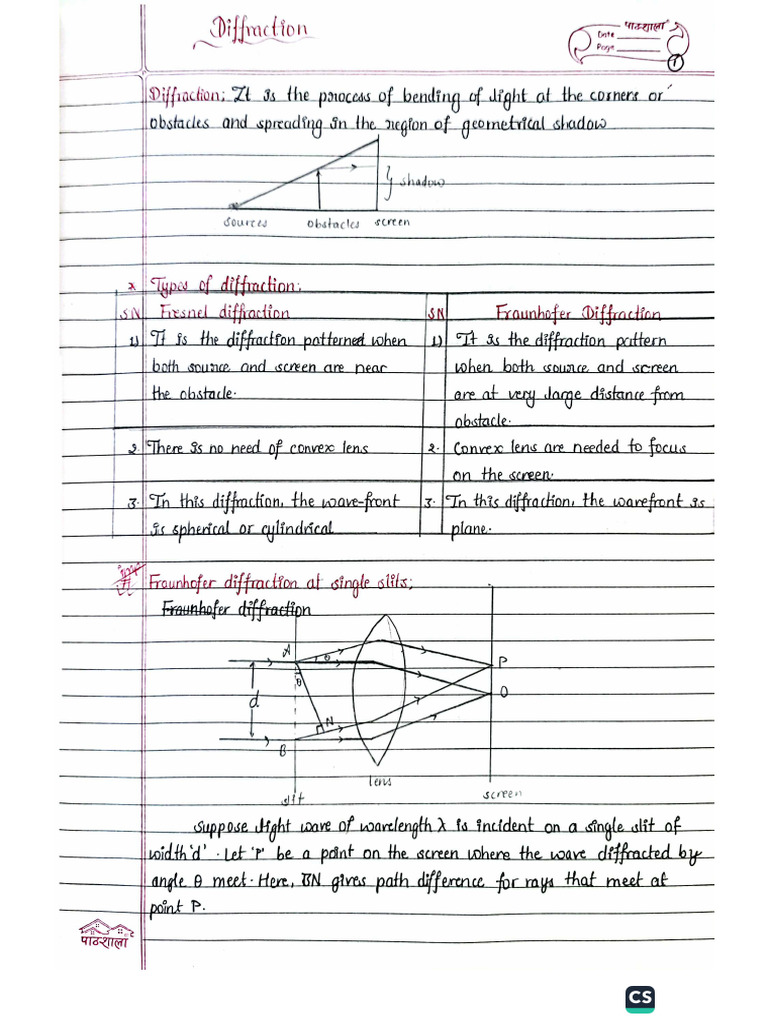 Diffraction
पाठशाला
Date
Page
1
Diffraction: It is the process of bending of light at the corners or
obstacles and spreading in the region of geometrical shadow
} shadow
sources obstacles screen
x Types of diffraction:
SN Fresnel diffraction SN Fraunhofer Diffraction
1) It is the diffraction patterned when 1) It is the diffraction pattern
both source and screen are near when both source and screen
the obstacle. are at very large distance from
obstacle.
2. There is no need of convex lens 2. Convex lens are needed to focus
on the screen.
3. In this diffraction, the wave-front 3. In this diffraction, the wavefront is
is spherical or cylindrical plane.
imp
# Fraunhofer diffraction at single slits;
Fraunhofer diffraction
A θ P
θ
d O
N
B
lens
slit screen
Suppose light wave of wavelength λ is incident on a single slit of
width 'd'. Let 'P' be a point on the screen where the wave diffracted by
angle θ meet. Here, BN gives path difference for rays that meet at
point P.
पाठशाला
CS